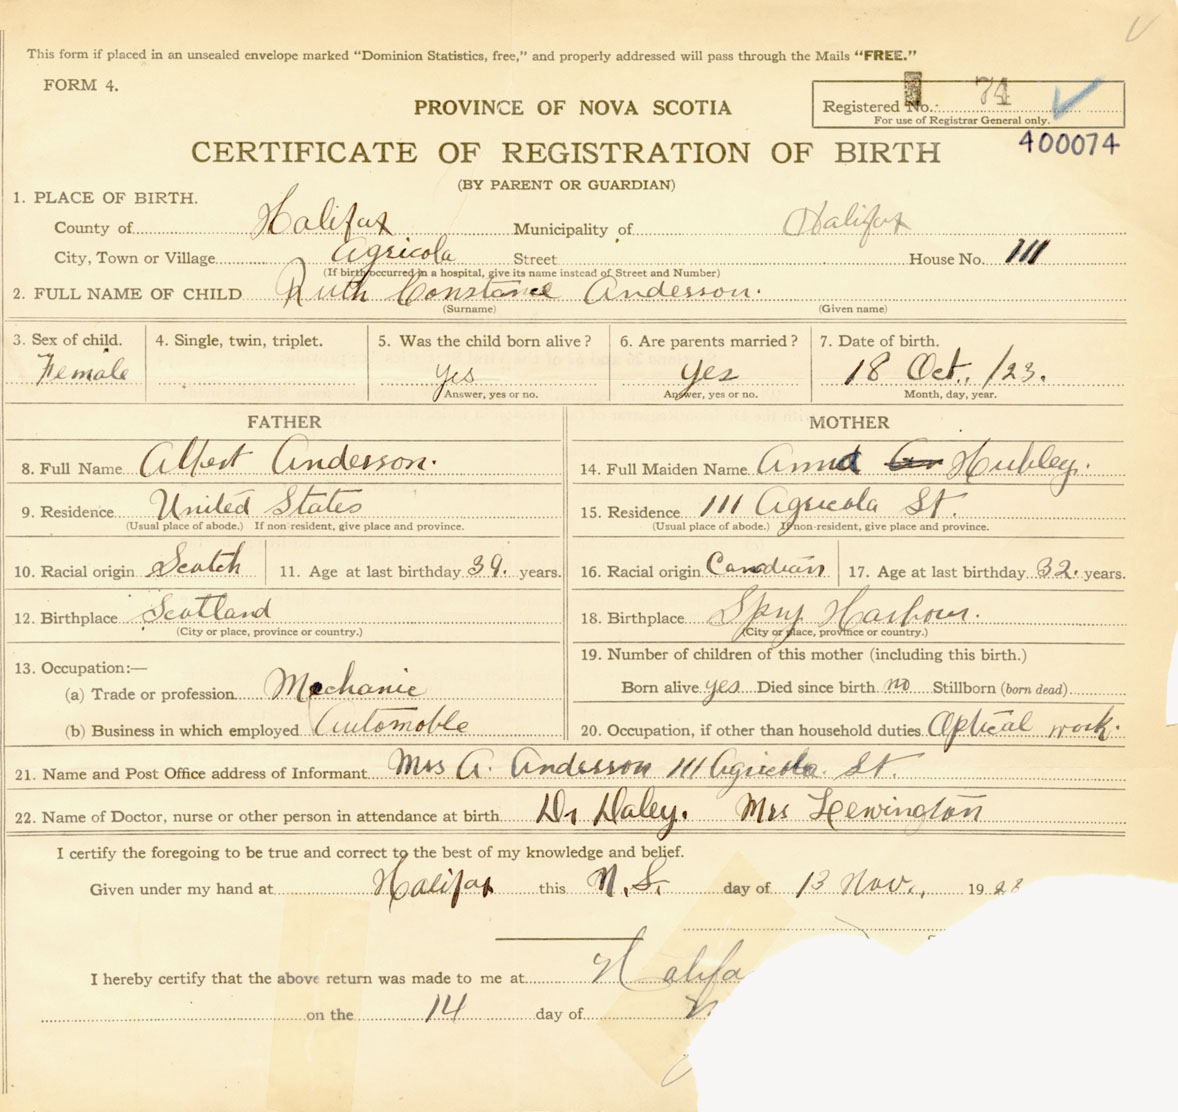 This form if placed in an unsealed envelope marked "Dominion Statistics, free," and properly addressed will pass through the Mails "FREE."
FORM 4.
PROVINCE OF NOVA SCOTIA
Registered No. 74
For use of Registrar General only.
400074
CERTIFICATE OF REGISTRATION OF BIRTH
(BY PARENT OR GUARDIAN)
1. PLACE OF BIRTH.
County of Halifax Municipality of Halifax
City, Town or Village Agricola Street House No. 111
(If birth occurred in a hospital, give its name instead of Street and Number)
2. FULL NAME OF CHILD Ruth Constance Andersson.
(Surname) (Given name)
3. Sex of child. 4. Single, twin, triplet. 5. Was the child born alive? 6. Are parents married? 7. Date of birth.
Female yes yes 18 Oct., /23.
Answer, yes or no. Answer, yes or no. Month, day, year.
FATHER MOTHER
8. Full Name Albert Andersson. 14. Full Maiden Name Anna Hubley.
9. Residence United States 15. Residence 111 Agricola St.
(Usual place of abode.) If non-resident, give place and province. (Usual place of abode.) If non-resident, give place and province.
10. Racial origin Scotch 11. Age at last birthday 39. years. 16. Racial origin Candian 17. Age at last birthday 32. years.
12. Birthplace Scotland 18. Birthplace Spry Harbour.
(City or place, province or country.) (City or place, province or country.)
13. Occupation:— 19. Number of children of this mother (including this birth.)
(a) Trade or profession Mechanic Born alive yes Died since birth no Stillborn (born dead)
(b) Business in which employed Automoble 20. Occupation, if other than household duties Optical work.
21. Name and Post Office address of Informant Mrs A. Andersson 111 Agricola St.
22. Name of Doctor, nurse or other person in attendance at birth Dr Daley. Mrs Lewington
I certify the foregoing to be true and correct to the best of my knowledge and belief.
Given under my hand at Halifax this N.S. day of 13 Nov., 19
I hereby certify that the above return was made to me at Halifa
on the 14 day of